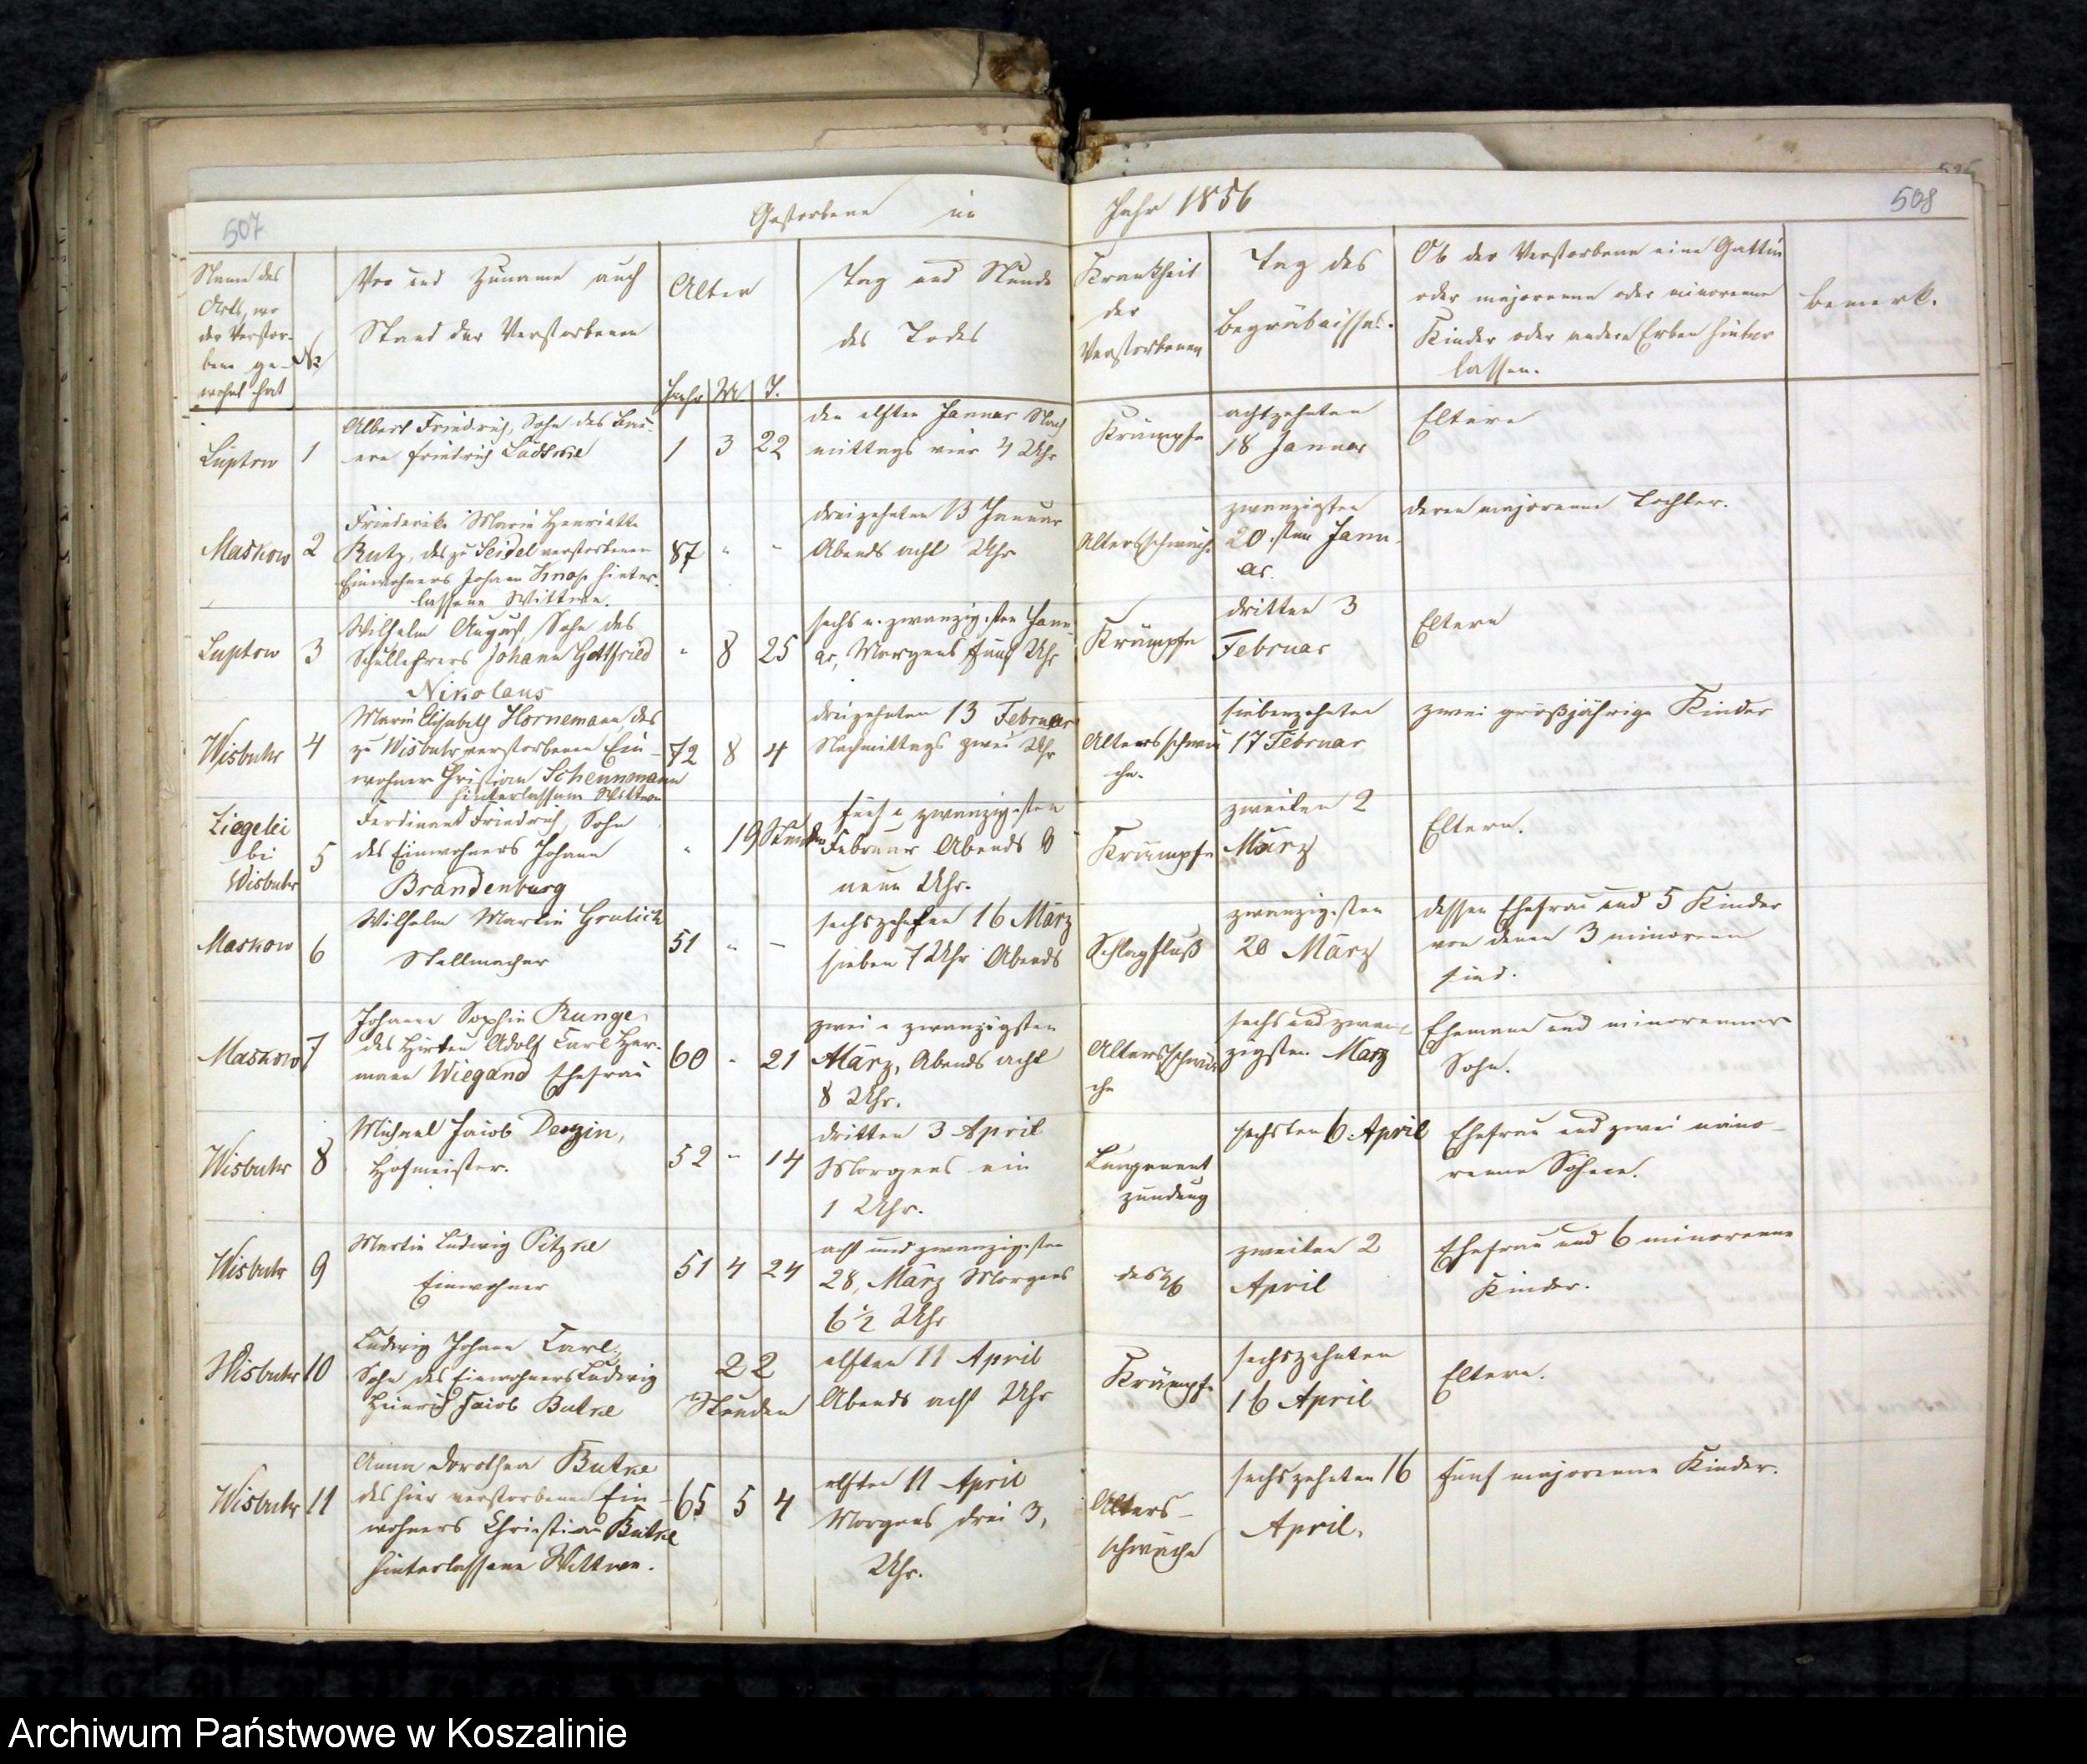 507
Gestorbene im
Jahr 1856
508
Name des
Orts, wo
der Verstor-
bene ge-
wohnt hat
No
Vor und Zuname auch
Stand der Verstorbenen
Alter
Jahr M T.
Tag und Stunde
des Todes
Krankheit
der
Verstorbenen
Tag des
Begräbnisses.
Ob der Verstorbene eine Gattin
oder majorenne oder minorenne
Kinder oder andere Erben hinter
lassen.
Bemerk.
Lüptow
1
Albert Friedrich, Sohn des Bau-
ern Friedrich Lüdtke
1 3 22
den elften Januar Nach
mittags vier 4 Uhr
Krämpfe
achtzehnten
18 Januar
Eltern
Maskow
2
Friederike Marie Henriette
Rutz, des zu Seidel verstorbenen
Einwohners Johann hinter-
lassene Wittwe.
87 - -
dreizehnten 13 Januar
Abends acht Uhr
Altersschwäche
zwanzigsten
20.sten Janu-
ar.
deren majorenne Tochter.
Luptow
3
Wilhelm August, Sohn des
Schullehrers Johann Gottfried
Nikolaus
- 8 25
sechs u. zwanzigsten Janu-
ar, Morgens fünf Uhr
Krämpfe
dritten 3
Februar
Eltern
Wisbuhr
4
Marie Elisabeth Hornemann des
zu Wisbuhr verstorbenen Ein-
wohner Christian Schennemann
hinterlassene Wittwe
72 8 4
dreizehnten 13 Februar
Nachmittags zwei Uhr
Altersschwä
che.
siebenzehnten
17 Februar
zwei großjährige Kinder
Ziegelei
bei
Wisbuhr
5
Ferdinand Friedrich, Sohn
des Einwohners Johann
Brandenburg
- 19 Stunden
fünf u zwanzigsten
Februar Abends 9
neun Uhr.
Krämpfe
zweiten 2
März
Eltern.
Maskow
6
Wilhelm Martin
Stellmacher
51 - -
sechszehnten 16 März
sieben 7 Uhr Abends
Schlagfluß
zwanzigsten
20 März
dessen Ehefrau und 5 Kinder
von denen 3 minorenn
sind.
Maskow
7
Johanne Sophie Runge
des Hirten Adolf Carl Her-
mann Wiegand Ehefrau
60 - 21
zwei u zwanzigsten
März, Abends acht
8 Uhr.
Altersschwä
che
sechs und zwan-
zigsten März
Ehemann und minorenner
Sohn.
Wisbuhr
8
Michael Jacob
Hofmeister.
52 - 14
dritten 3 April
Morgens ein
1 Uhr.
Lungenent
zündung
sechsten 6 April
Ehefrau und zwei mino-
renne Söhne.
Wisbuhr
9
Martin Ludwig Pitzke
Einwohner
51 4 24
acht und zwanzigsten
28, März Morgens
6 1/2 Uhr
zweiten 2
April
Ehefrau und 6 minorenne
Kinder.
Wisbuhr
10
Ludwig Johann Carl,
Sohn des Einwohners Ludwig
Heinrich Jacob Butke
22
Stunden
elften 11 April
Abends acht Uhr
Krämpfe
sechszehnten
16 April
Eltern.
Wisbuhr
11
Anna Dorothea Butke
des hier verstorbenen Ein-
wohners Christian Butke
hinterlassene Wittwe.
65 5 4
elften 11 April
Morgens drei 3,
Uhr.
Alters-
schwäche
sechszehnten 16
April.
fünf majorenne Kinder.
Archiwum Państwowe w Koszalinie